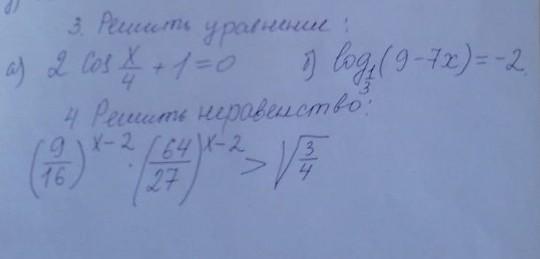 3. Решить уравнение:
а) 2 cos x/4 + 1 = 0 б) log_{1/3}(9-7x) = -2.
4 Решить неравенство:
(9/16)^{x-2} · (64/27)^{x-2} > √(3/4)